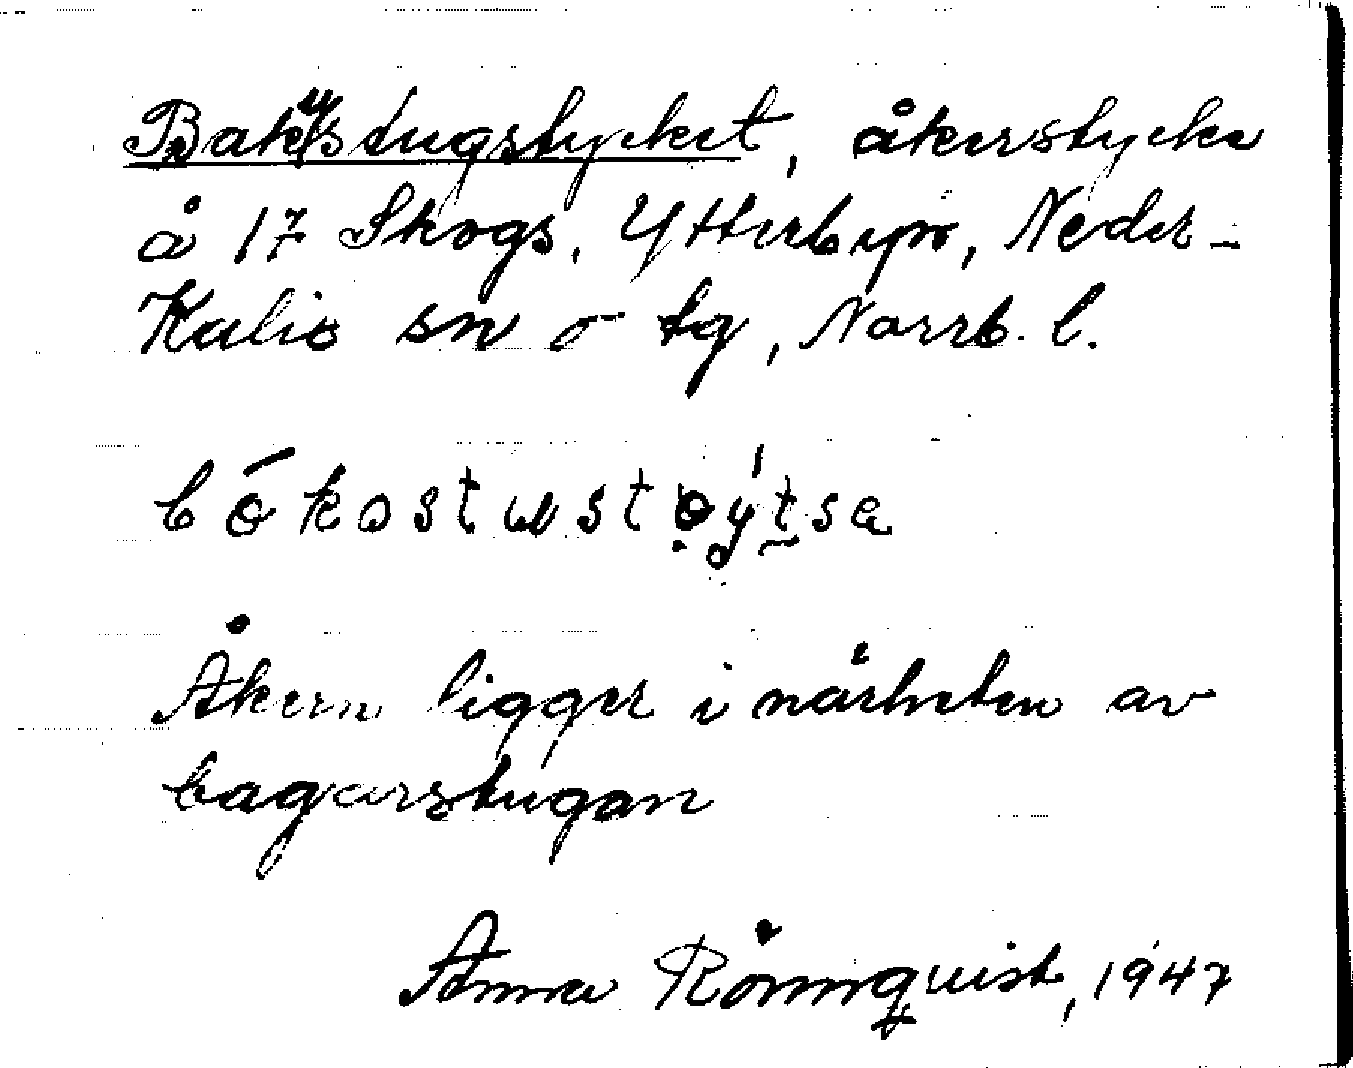 Bakustugstycket, åkerstycke
å 17 Skogs, Ytterbyn, Neder-
Kalix sn o tg, Norrb. l.
Åkern ligger i närheten av
bagarstugan
Anna Rönnquist, 1947